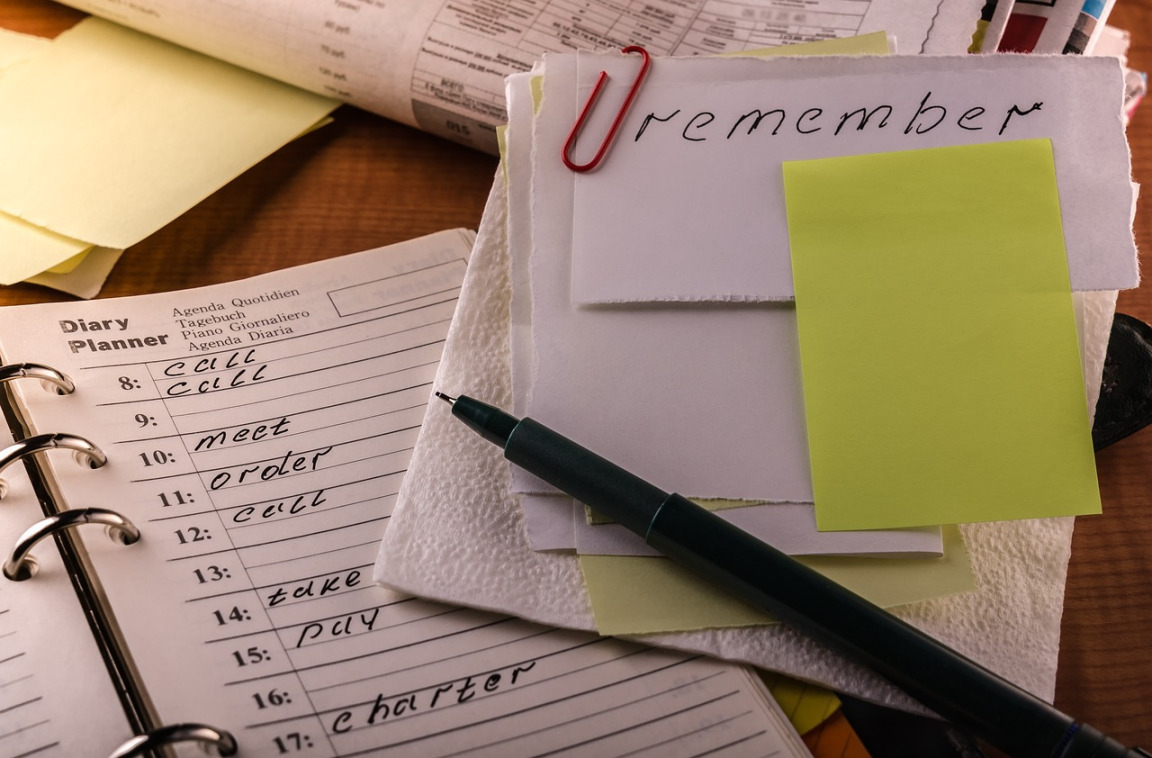 015
remember
Diary
Planner
Agenda Quotidien
Tagebuch
Piano Giornaliero
Agenda Diaria
call
8: call
9:
10: meet
11: order
12: call
13:
14: take
15: pay
16:
17: charter